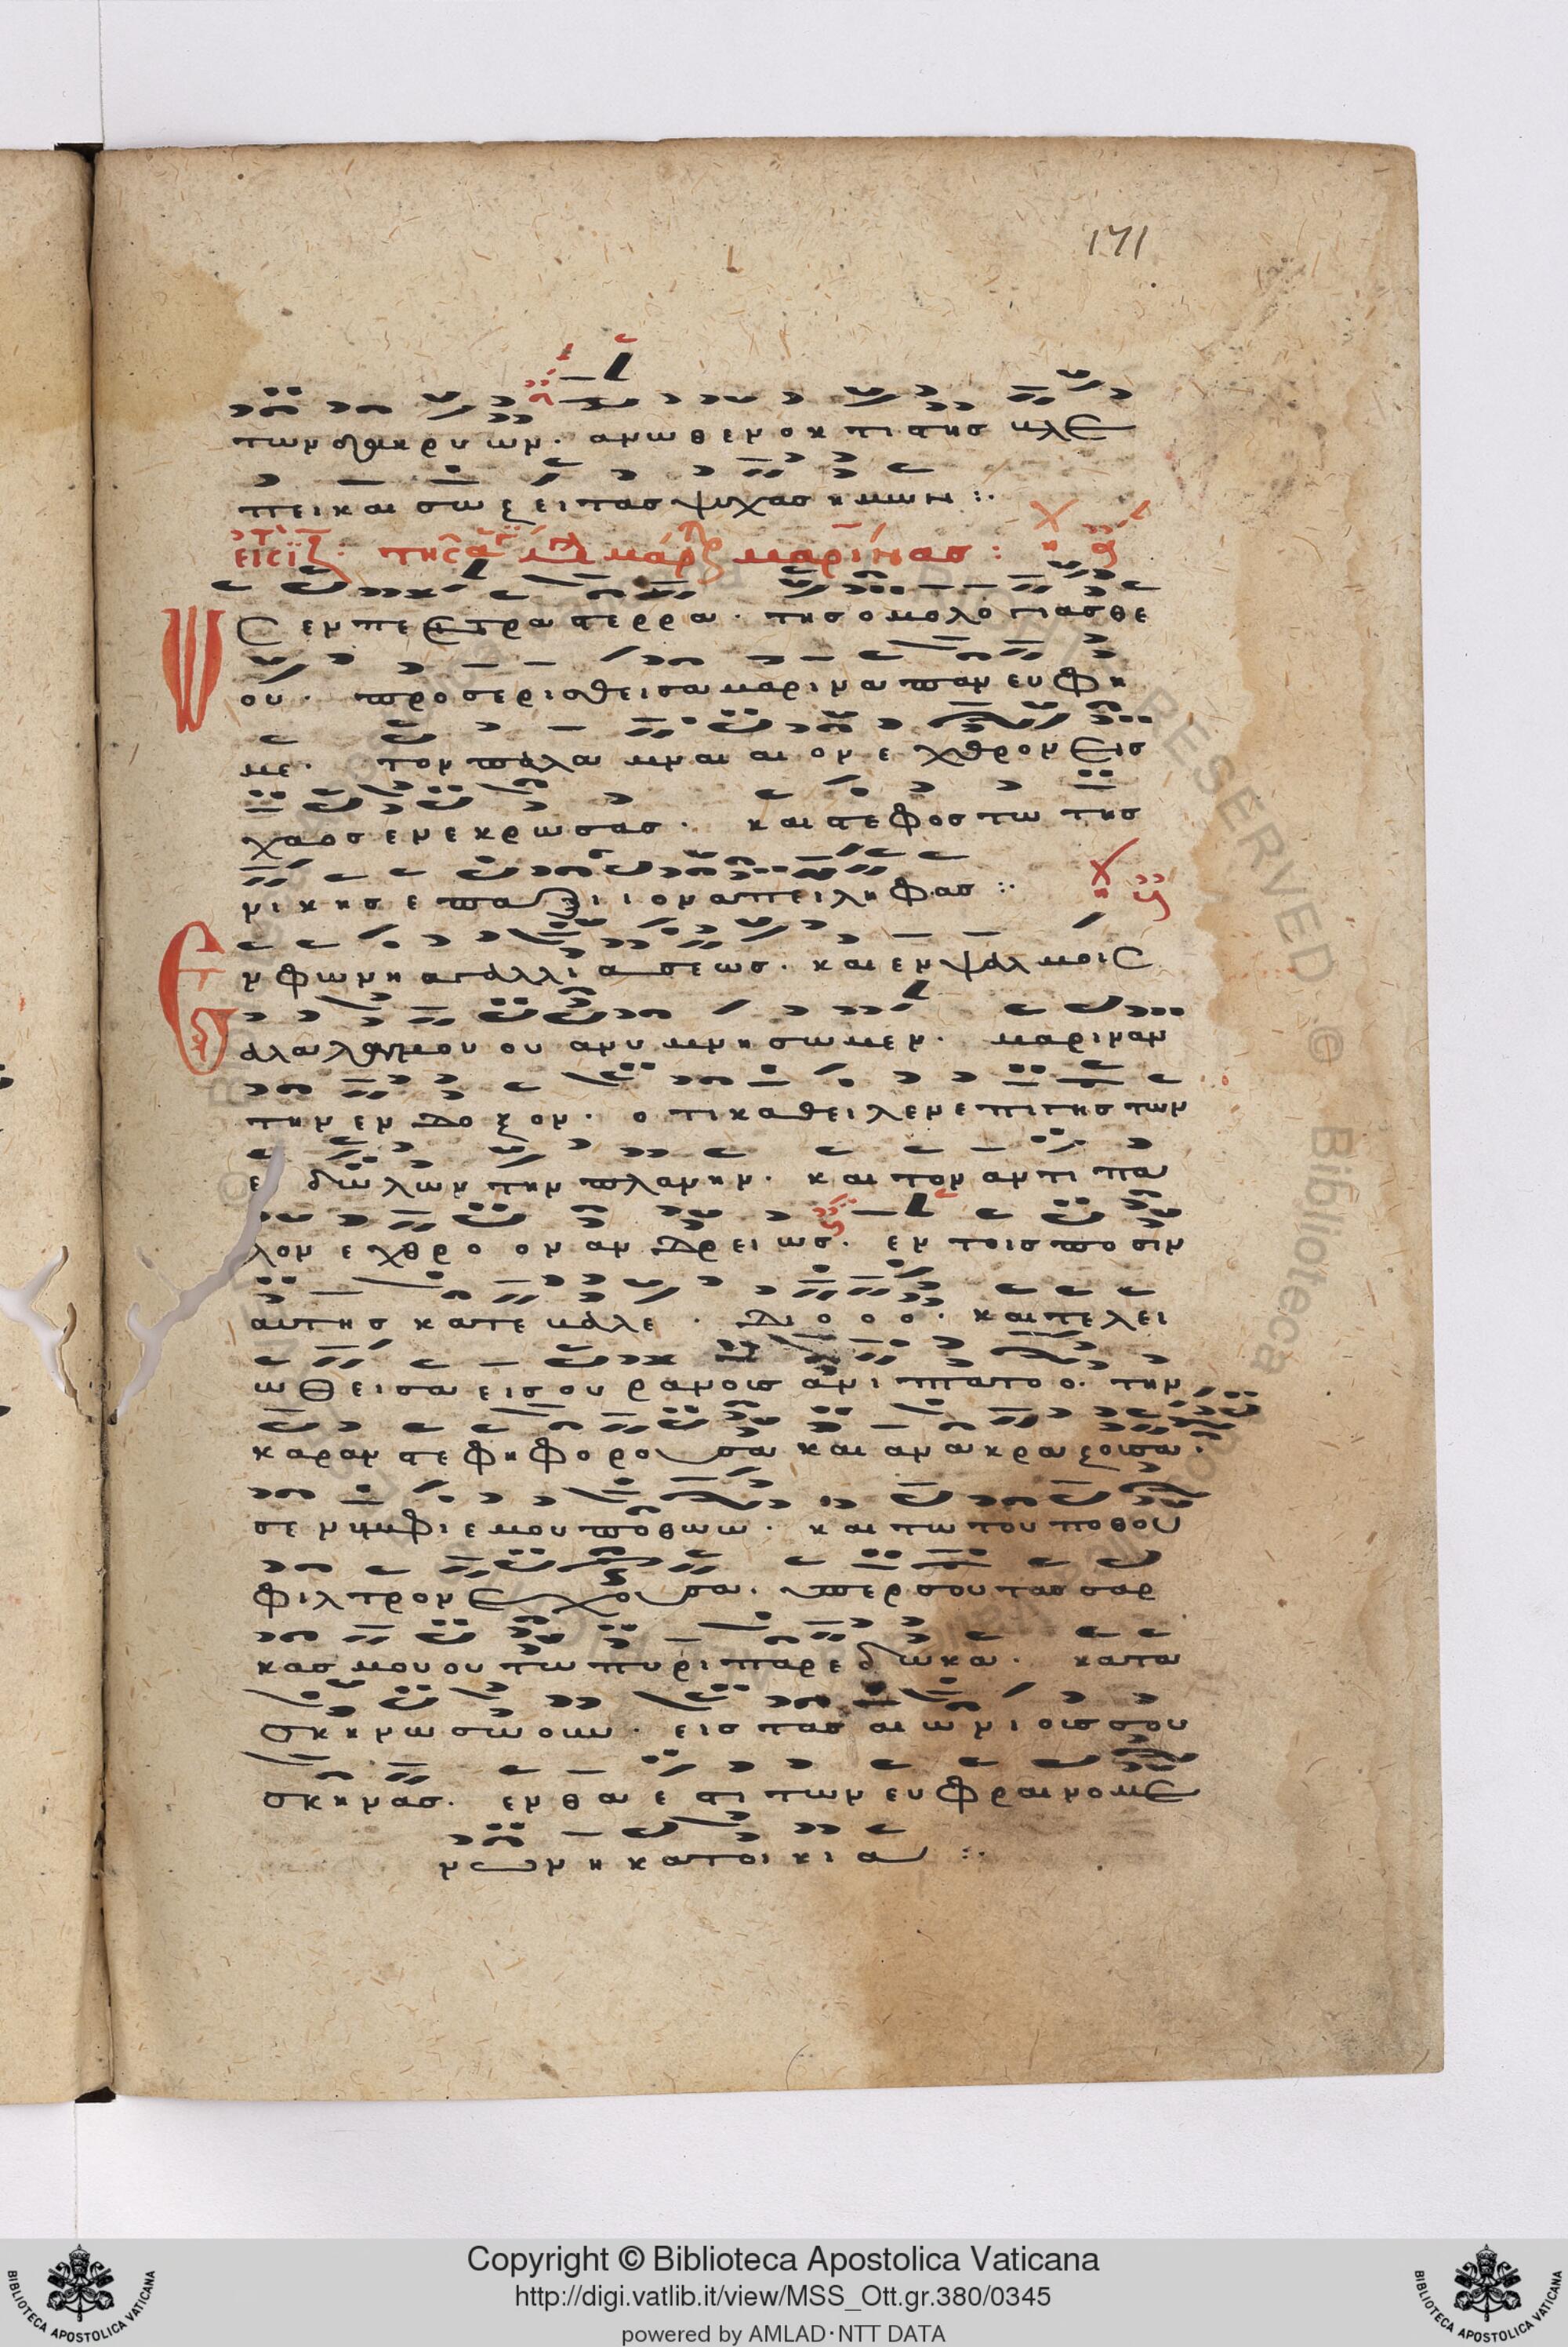 171
των δακρυων · ανωθεν ο κτιστησ βλε
πει και σωζει τασ ψυχασ ημων :·
μαρινασ :
εν πε ε τρα στερρα · τησ ομολογιασ θε
ου · προσερισθεισα μαρινα πανευφη
με · τον παλαμναι αι ον εχθρον εισ
χαοσ ενεκρωσασ · και στεφοσ τω τησ
νικησ επαξι ι ον απειληφασ :·
Εν φωνη αγαλλι ασεωσ · και εν ψαλμοισ
αλαλαγμου ου ανυμνησωμεν · μαριναν
την ενδοξον · οτι καθειλεν επι γησ των
ειδωλων την πλανην · και τον αντιπα
λον εχθρο ον ανδρειωσ · εν τοισ ποσιν
αυτησ κατεβαλε · διο ο ο · και τελει
ωθεισα εισ ουρανουσ ανιπτατο ο · την
καραν στεφηφορουσα και ανακραζουσα ·
σε νυμφιε μου ποθω ω · και τω του ποθου
φιλτρον εχουσα · υπερ σου τασ σαρ
κασ μου ου τω πυρι παρεδωκα ·
σκηνωσω · εισ τασ αιωνιουσ σου
σκηνασ · ενθα εστι των ευφραινομε
νων η κατοικια :·
Copyright © Biblioteca Apostolica Vaticana
http://digi.vatlib.it/view/MSS_Ott.gr.380/0345
powered by AMLAD·NTT DATA
BIBLIOTECA APOSTOLICA VATICANA
BIBLIOTECA APOSTOLICA VATICANA